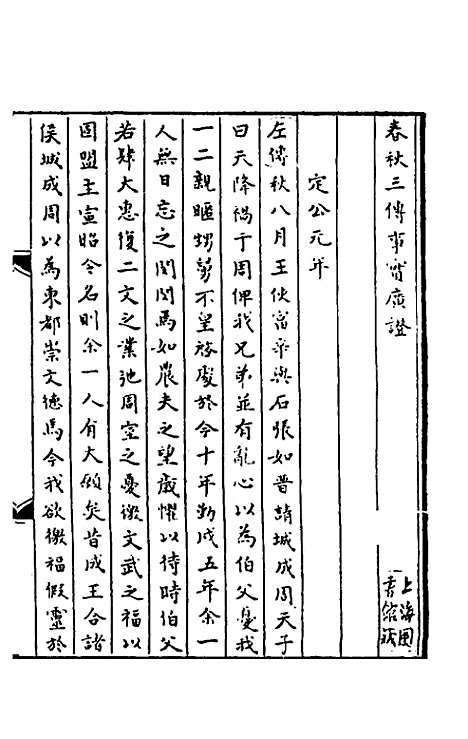 春秋三傳事實廣證
上海圖
書館藏
定公元年
左傳秋八月王使富辛與石張如晉請城成周天子
曰天降禍于周俾我兄弟並有亂心以為伯父憂我
一二親暱甥舅不皇啓處於今十年勤戍五年余一
人無日忘之閔閔焉如農夫之望歲懼以待時伯父
若肆大惠復二文之業弛周室之憂徼文武之福以
固盟主宣昭令名則余一人有大願矣昔成王合諸
侯城成周以為東都崇文德焉今我欲徼福假靈於